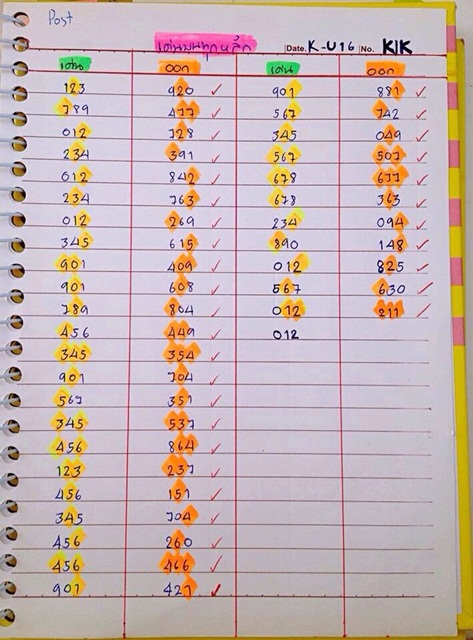 Post
เด่นบนทุกหลัก Date. K-U16 No. KIK
เด่น ออก เด่น ออก
123 920 ✓ 901 881 ✓
789 477 ✓ 567 742 ✓
012 728 ✓ 345 049 ✓
234 391 ✓ 567 507 ✓
012 842 ✓ 678 677 ✓
234 763 ✓ 678 363 ✓
012 269 ✓ 234 094 ✓
345 615 ✓ 890 148 ✓
901 409 ✓ 012 825 ✓
901 608 ✓ 567 630 ✓
789 804 ✓ 012 211 ✓
456 449 ✓ 012
345 354 ✓
901 704 ✓
567 351 ✓
345 537 ✓
456 864 ✓
123 237 ✓
456 151 ✓
345 704 ✓
456 260 ✓
456 466 ✓
901 421 ✓